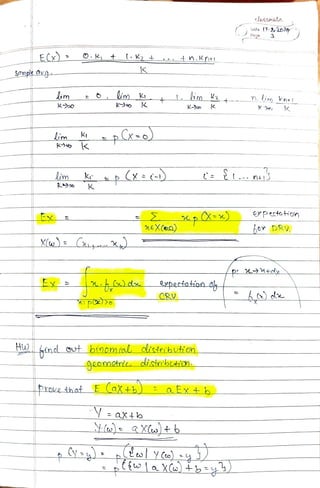 classmate
Date 17-2-2024
Page 3
E(x) = 0.k₁ + 1.k₂ + ... + n.kₙ₊₁
K
sample avg.
lim = 0. lim k₁ + 1. lim k₂ + .. n lim kₙ₊₁
k→∞ k→∞ K k→∞ K k→∞ K
lim k₁ = p(X=0)
k→∞ K
lim kᵢ = p(X = i-1) i = {1 ... n+1}
k→∞ K
Ex = = Σ x p(X=x) expectation
x∈X(Ω) for DRV
X(ω) = (x₁, ... xₖ)
Ex = ∫ x.fₓ(x) dx expectation of CRV
x: p(x)>0
p: x→x+dx
= fₓ(x) dx
HW find out binomial distribution
geometric distribution
Prove that E(aX+b) = aEx+b
Y = ax+b
Y(ω) = a X(ω) + b
p(Y=y) = p({ω| Y(ω)=y})
= p({ω| a X(ω) + b = y})